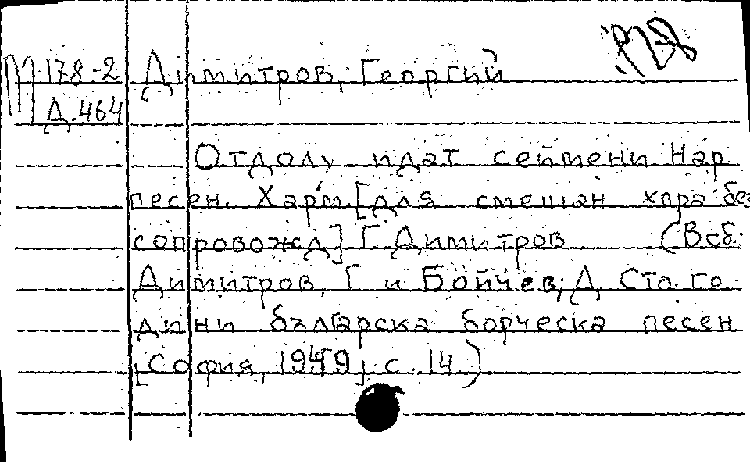 М.178-2 Димитров, Георгий
Д.464
Отдолу идат сеймени. Нар
песен. Харм. [для смешан хора без
сопровожд] Г. Димитров (В сб:
Димитров, Г и Бойчев, Д. Сто го-
дини българска борческа песен
[София, 1949] с. 14.)